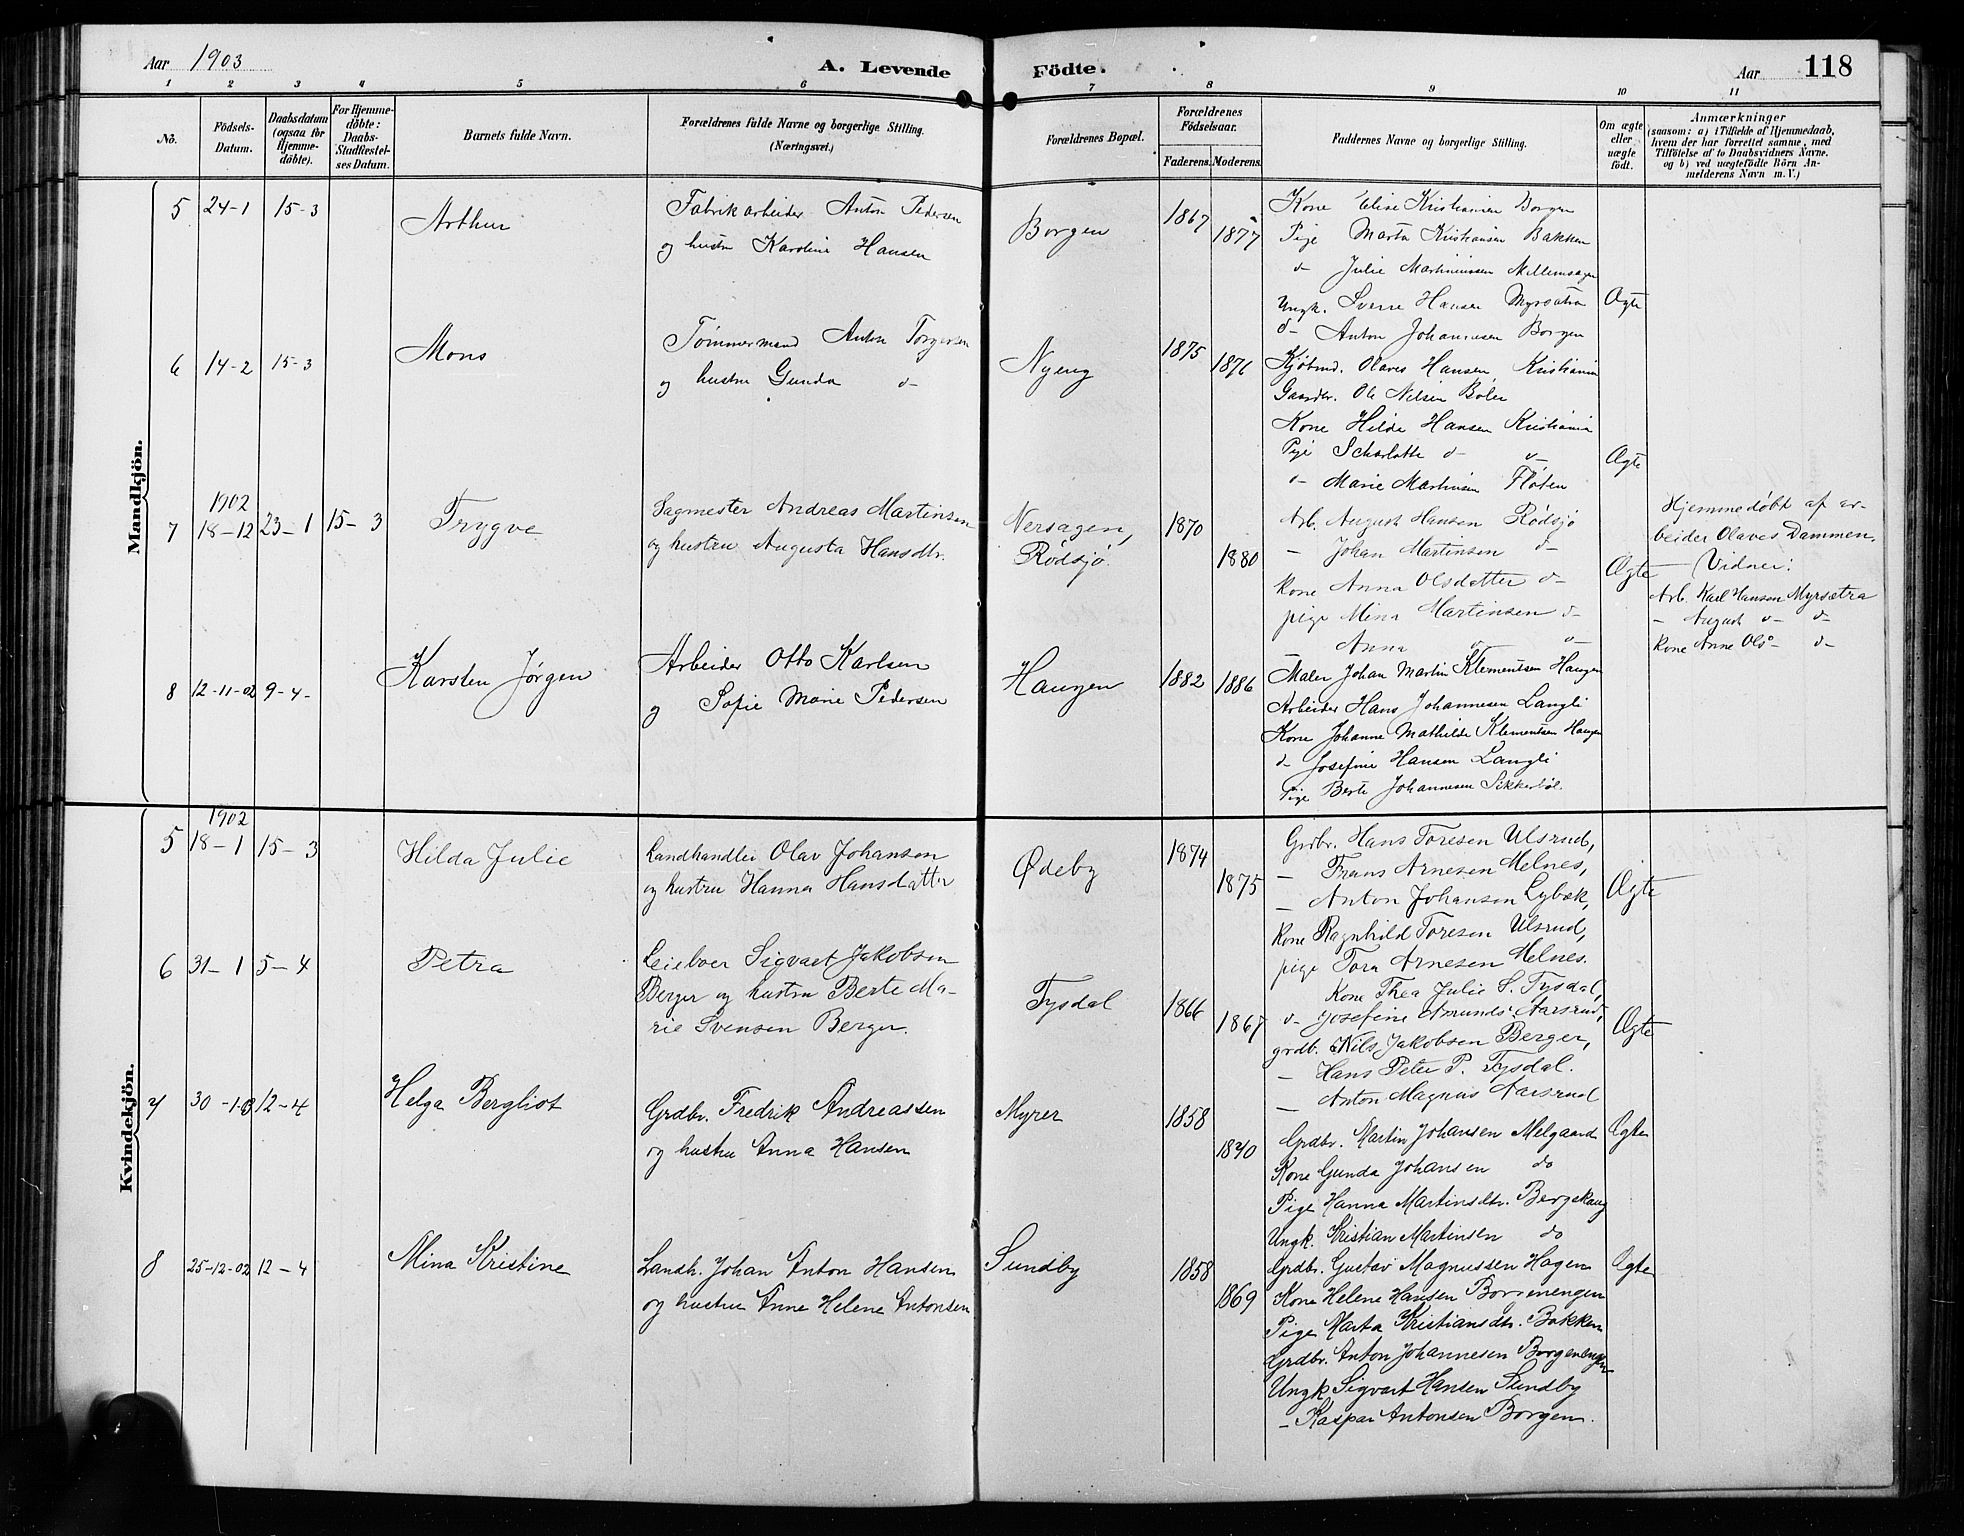 Aar 1903
A. Levende Födte.
Aar
118
1 2 3 4 5 6 7 8 9 10 11
No.
Födsels-Datum.
Daabsdatum (ogsaa for Hjemmedöbte).
For Hjemmedöbte: Daabs-Stadfæstelses Datum.
Barnets fulde Navn.
Forældrenes fulde Navne og borgerlige Stilling.
(Næringsvei.)
Forældrenes Bopæl.
Forældrenes Födselsaar.
Faderens. Moderens.
Faddernes Navne og borgerlige Stilling.
Om ægte eller uægte födt.
Anmærkninger
(saasom: a) i Tilfælde af Hjemmedaab,
hvem der har forrettet samme, med
Tilföielse af to Daabsvidners Navne,
og b) ved uægtefödte Börn Anmelderens Navn m. V.)
Mandkjön.
5 24-1 15-3 Arthur
Fabrikarbeider Anton Pedersen
og hustru Karoline Hansen
Borgen 1867 1877
Kone Elise Kristiansen Borgen
Pige Marta Kristiansen Bakken
d- Julie Martiniussen
Ungk. Sverre Hansen Myrsætra
d- Anton Johannesen Borgen
Ægte
6 14-2 15-3 Mons
Tømmermand Anton Torgersen
og hustru Gunda d-
Nyeng 1875 1876
Kjøbmd. Olaves Hansen Kristiania
Gaardbr. Ole Nilsen Bøler
Kone Hilda Hansen Kristiania
Pige Scharlotte d- d-
d- Marie Martinsen Fløten
Ægte
7 1902 18-12 23-1 15-3 Trygve
Sagmester Andreas Martinsen
og hustru Augusta Hansdtr.
Nersagen,
Rødsjø.
1870 1880
Arb. August Hansen Rødsjø
- Johan Martinsen d-
kone Anna Olsdatter d-
pige Mina Martinsen d-
Anna d- d-
Ægte
Hjemmedøbt af ar-
beider Olaves Dammen.
Vidner:
Arb. Karl Hansen Myrsætra
- August d- d-
kone Anne Ols- d-
8 12-11-02 9-4- Karsten Jørgen
Arbeider Otto Karlsen
og Sofie Marie Pedersen
Haugen 1882 1886
Maler Johan Martin Klementsen Haugen
Arbeider Hans Johannesen Langli
Kone Johanne Mathilde Klementsen Haugen
d- Josefine Hansen Langli
Pige Berte Johannesen Sikkerbøl.
Kvindekjön.
5 1902 18-1 15-3 Hilda Julie
Landhandler Olav Johansen
og hustru Hanna Hansdatter
Ødeby 1874 1875
Grdbr. Hans Toresen Ulsrud,
- Frans Arnesen Melnes,
- Anton Johansen Lybæk,
kone Ragnhild Toresen Ulsrud,
pige Tora Arnesen Melnes.
Ægte
6 31-1 5-4 Petra
Leieboer Sigvart Jakobsen
Berger og hustru Berte Ma-
rie Svensen Berger.
Tysdal 1866 1867
Kone Thea Julie S. Tysdal,
d- Josefine Amunds. Aarsrud,
grdb. Nils Jakobsen Berger,
- Hans Peter P. Tysdal.
- Anton Magnus Aarsrud
Ægte
7 30-1-03 12-4 Helga Bergliot
Grdbr. Fredrik Andreassen
og hustru Anna Hansen
Myrer 1858
Grdbr. Martin Johansen Melgaard
Kone Gunda Johansen do
Pige Hanna Martinsdtr. Bergskaug
Ungk. Kristian Martinsen do
Ægte
8 25-12-02 12-4 Mina Kristine
Landh. Johan Anton Hansen
og hustru Anne Helene Antonsen
Sundby 1858 1869
Grdbr. Gustav Magnussen Hagen
Kone Helene Hansen Borgenengen
Pige Marta Kristiansdtr. Bakken
Grdbr. Anton Johannesen Borgenengen
Ungk Sigvart Hansen Sundby
- Kaspar Antonsen Borgen.
Ægte